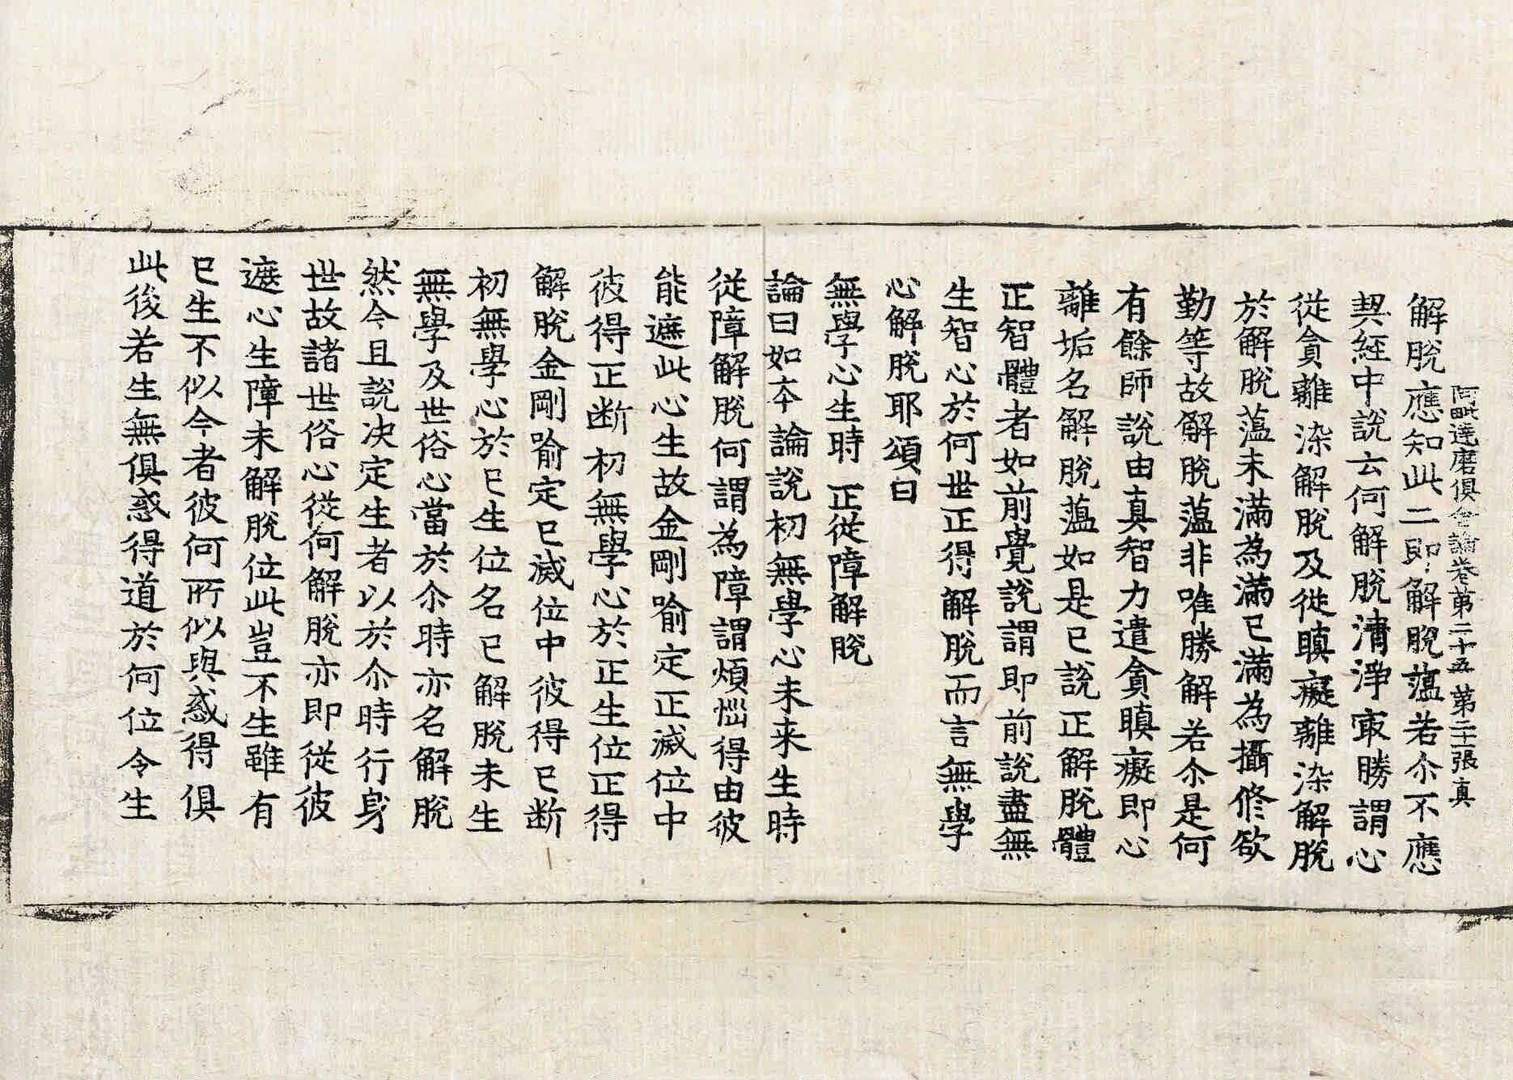 阿毗達磨俱舍論卷第二十五 第二十一張 真
解脫應知此二即解脫蕴若尒不應
契經中說云何解脫清淨㝡勝謂心
從貪離染解脫及從瞋癡離染解脫
於解脫蕴未滿為滿已滿為攝修欲
勤等故解脫蕴非唯勝解若尒是何
有餘師說由真智力遣貪瞋癡即心
離垢名解脫蕴如是已說正解脫體
正智體者如前覺說謂即前說盡無
生智心於何世正得解脫而言無學
心解脫耶頌曰
無學心生時 正從障解脫
論曰如本論說初無學心未來生時
從障解脫何謂為障謂煩惱得由彼
能遮此心生故金剛喻定正滅位中
彼得正断初無學心於正生位正得
解脫金剛喻定已滅位中彼得已断
初無學心於已生位名已解脫未生
無學及世俗心當於尒時亦名解脫
然今且說決定生者以於尒時行身
世故諸世俗心從何解脫亦即從彼
遮心生障未解脫位此豈不生雖有
已生不似今者彼何所似與惑得俱
此後若生無俱惑得道於何位令生